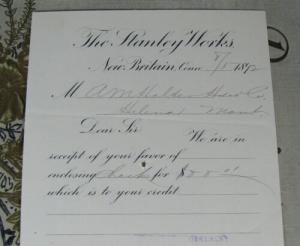 The Stanley Works.
New Britain, Conn 8/5 1892
M A M Holter Hdw Co.
Helena Mont.
Dear Sir We are in
receipt of your favor of
enclosing check for
which is to your credit